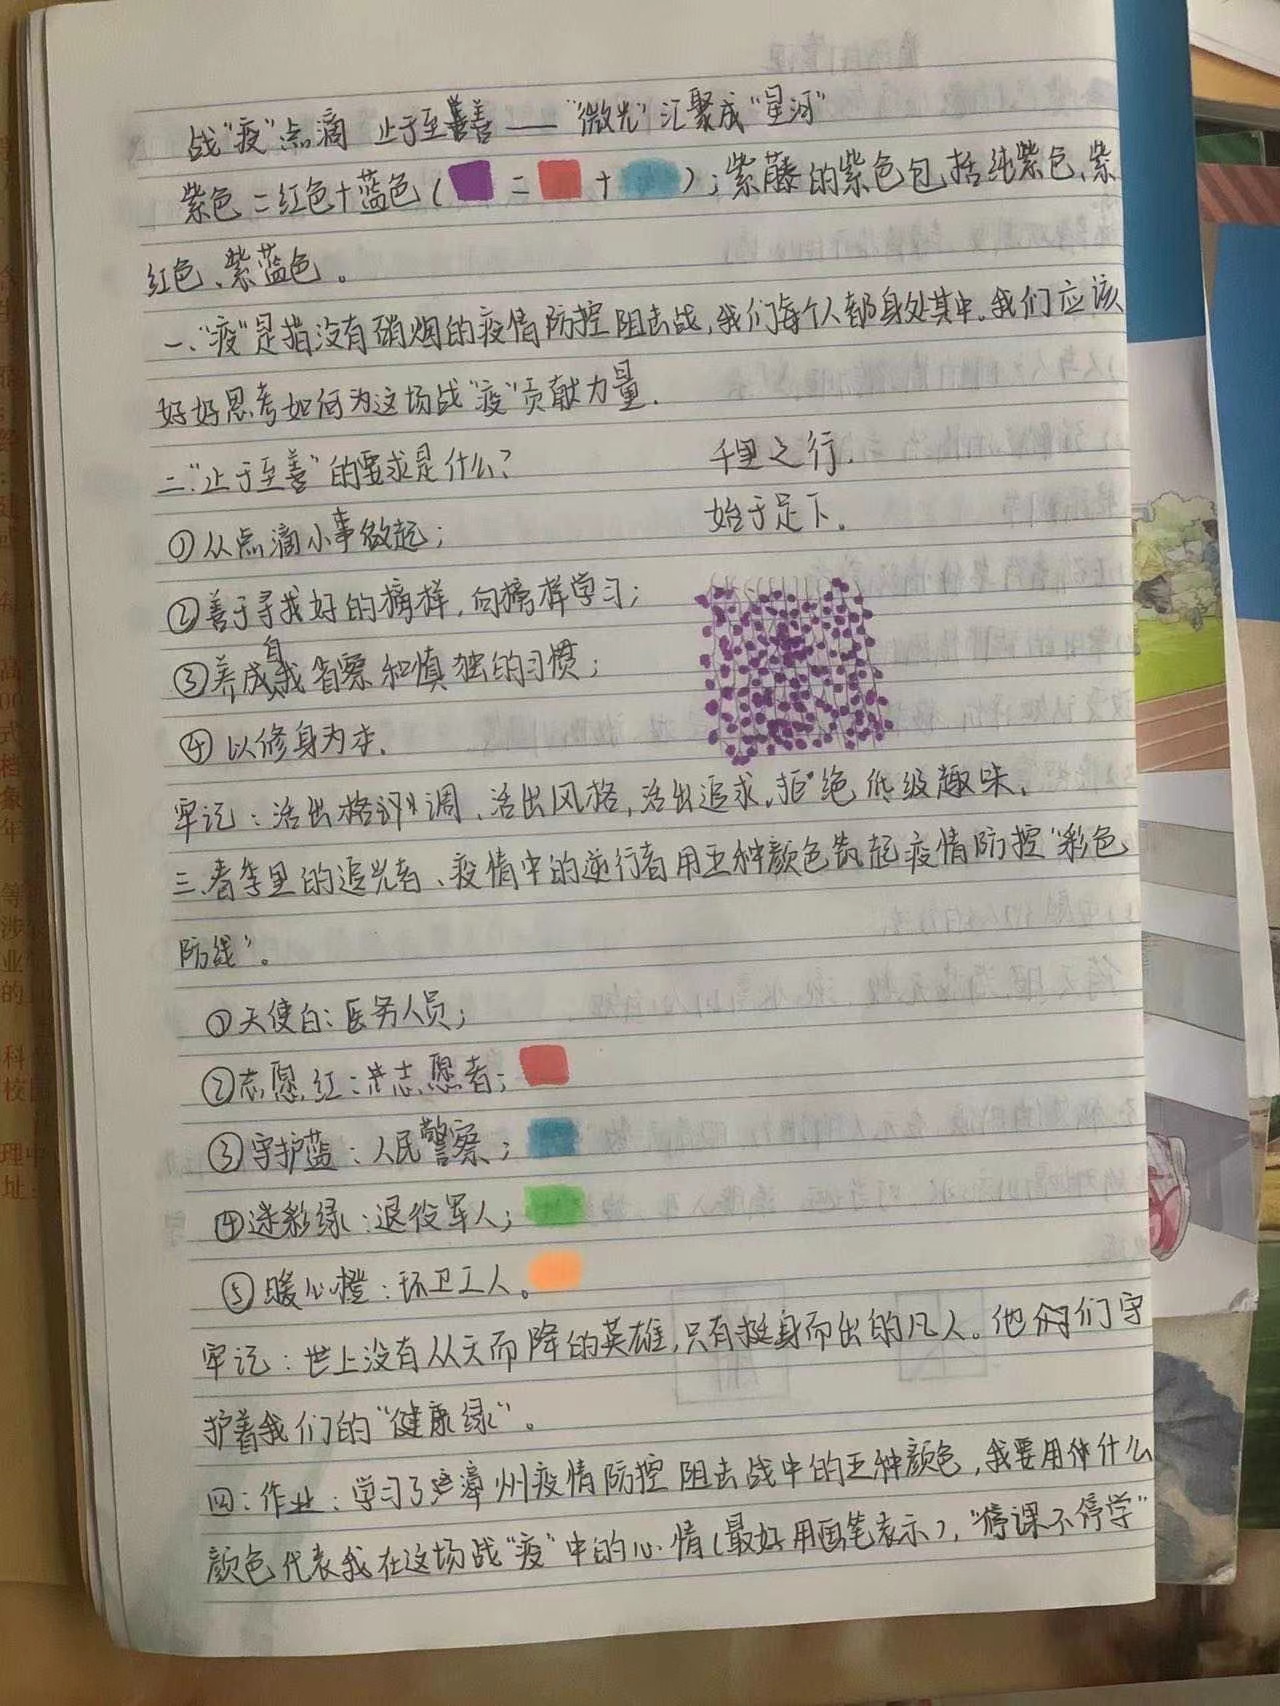 战"疫"点滴 止于至善——"微光"汇聚成"星河"
紫色=红色+蓝色( = + );紫藤的紫色包括纯紫色、紫
红色、紫蓝色。
一、"疫"是指没有硝烟的疫情防控阻击战,我们每个人都身处其中。我们应该
好好思考如何为这场战"疫"贡献力量.
二."止于至善"的要求是什么?
千里之行.
始于足下.
①从点滴小事做起;
②善于寻找好的榜样,向榜样学习;
③养成自我省察和慎独的习惯;
④以修身为本.
牢记:活出格调、活出风格,活出追求,拒绝低级趣味.
三.春季里的追光者、疫情中的逆行者用五种颜色筑起疫情防控"彩色
防线"。
①天使白:医务人员;
②志愿红:志愿者;
③守护蓝:人民警察;
④迷彩绿:退役军人;
⑤暖心橙:环卫工人。
牢记:世上没有从天而降的英雄,只有挺身而出的凡人。他们守
护着我们的"健康绿"。
四:作业:学习了漳州疫情防控阻击战中的五种颜色,我要用什么
颜色代表我在这场战"疫"中的心情(最好用画笔表示),"停课不停学"